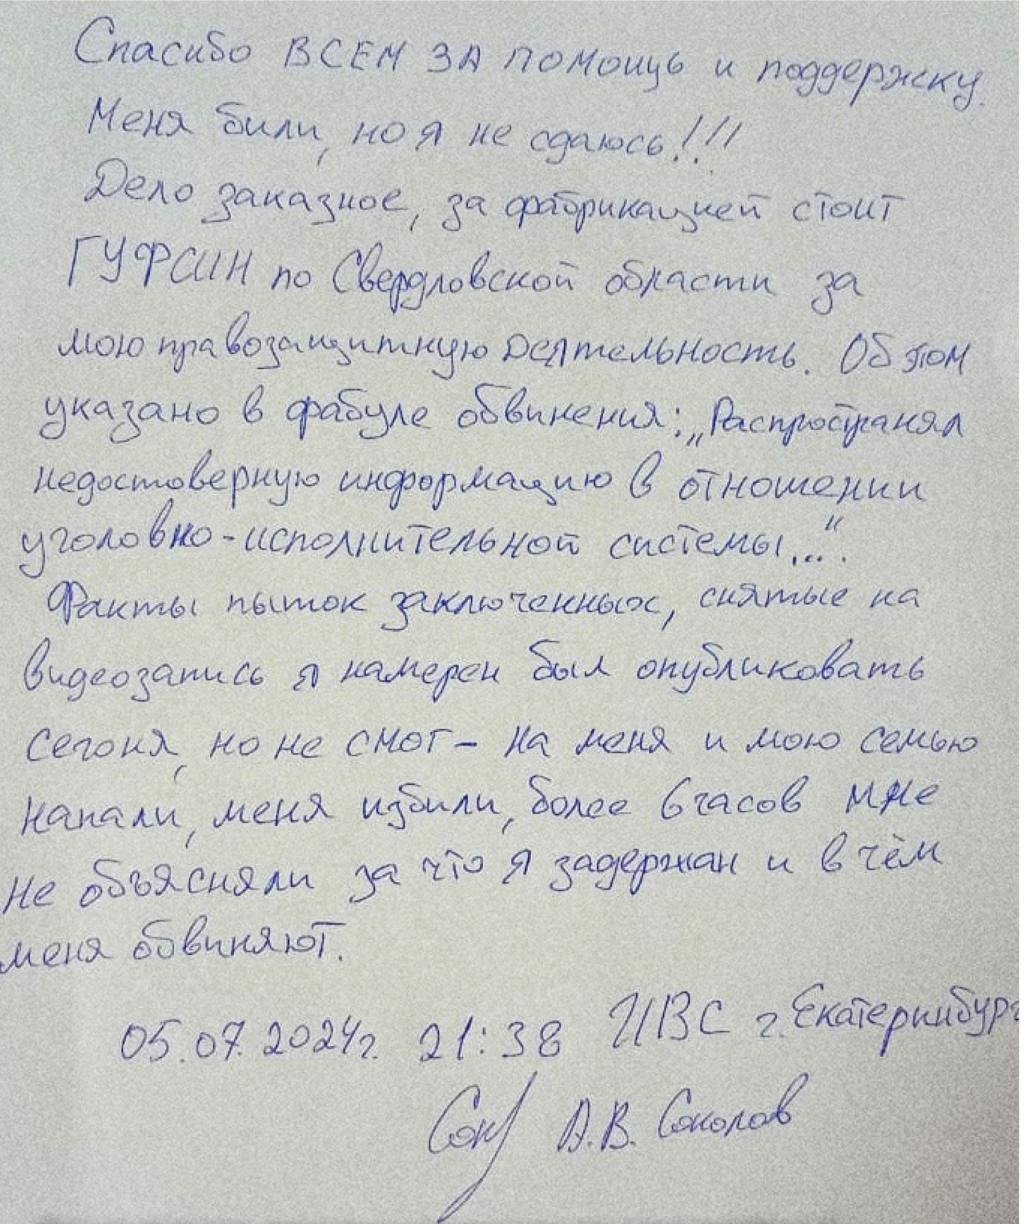 Спасибо ВСЕМ ЗА помощь и поддержку.
Меня били, но я не сдаюсь!!!
Дело заказное, за фабрикацией стоит
ГУФСИН по Свердловской области за
мою правозащитную деятельность. Об этом
указано в фабуле обвинения: „Распространял
недостоверную информацию в отношении
уголовно-исполнительной системы...".
Факты пыток заключенных, снятые на
видеозапись я намерен был опубликовать
сегоня, но не смог – на меня и мою семью
напали, меня избили, более 6 часов мне
не объясняли за что я задержан и в чём
меня обвиняют.
05.07.2024г. 21:38 ИВС г. Екатеринбург
Сок А.В. Соколов